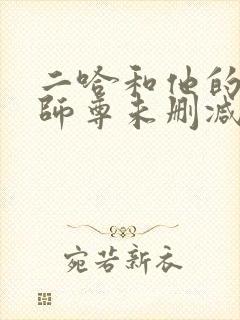 二哈和他的
师尊未删减
宛若新衣